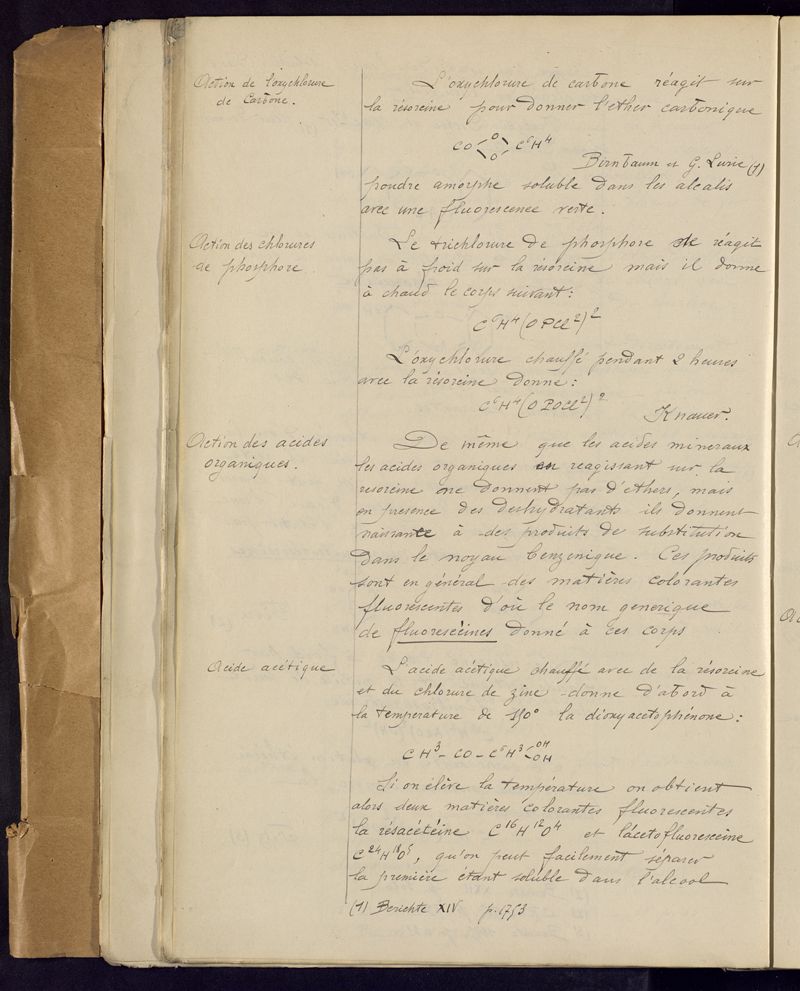 Action de l'oxychlorure
de Carbone.
L'oxychlorure de carbone réagit sur
la résorcine pour donner l'ether carbonique
CO<O O>C⁶H⁴
Birnbaum et G. Lurie (1)
poudre amorphe soluble dans les alcalis
avec une fluorescence verte.
Action des chlorures
de phosphore
Le trichlorure de phosphore ne réagit
pas à froid sur la résorcine mais il donne
à chaud le corps suivant :
C⁶H⁴(OPCl²)²
L'oxychlorure chauffé pendant 2 heures
avec la résorcine donne :
C⁶H⁴(OPOCl²)²
Knauer.
Action des acides
organiques.
De même que les acides mineraux
les acides organiques en reagissant sur la
resorcine ne donnent pas d'ethers, mais
en presence des deshydratants ils donnent
naissance à des produits de substitution
dans le noyau benzenique. Ces produits
sont en général des matières colorantes
fluorescentes d'où le nom generique
de fluorescéines donné à ces corps
Acide acétique
L'acide acétique chauffé avec de la résorcine
et du chlorure de zinc donne d'abord à
la température de 150° la dioxyacetophénone :
CH³ - CO - C⁶H³<OH OH
Si on élève la température on obtient
alors deux matières colorantes fluorescentes
la résacétéine C¹⁶H¹²O⁴ et l'acetofluoresceine
C²⁴H¹⁸O⁵, qu'on peut facilement séparer
la première étant soluble dans l'alcool
(1) Berichte XIV p. 1753